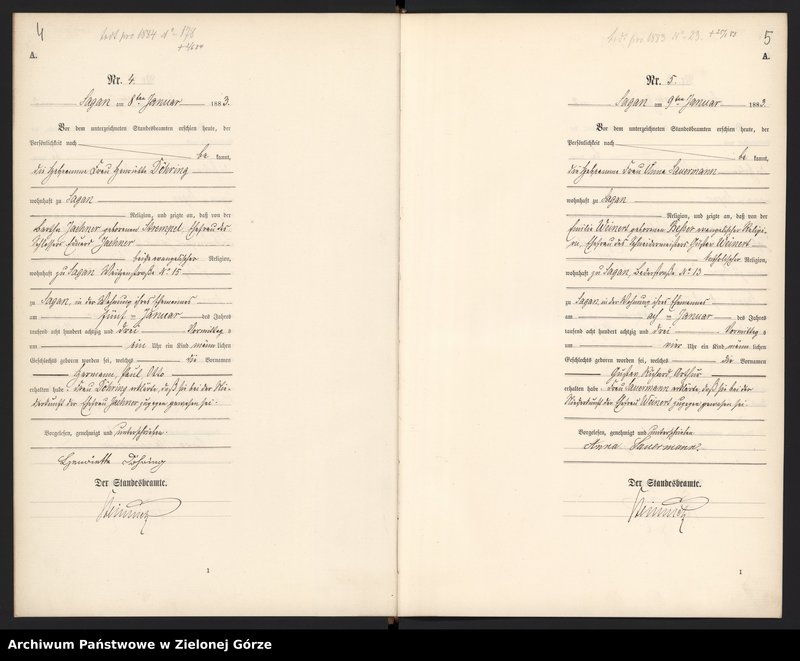 4
todt pro 1884 No 176
A.
Nr. 4.
Sagan am 8ten Januar 1883.
Vor dem unterzeichneten Standesbeamten erschien heute, der
Persönlichkeit nach
be kannt,
die Hebeamme Frau Henriette Döhring
wohnhaft zu Sagan
Religion, und zeigte an, daß von der
Bertha Jachner geborenen Stempel, Ehefrau des
Schlossers Eduard Jachner
beide evangelischer Religion,
wohnhaft zu Sagan No 15
zu Sagan, in der Wohnung ihres Ehemannes
am fünf ten Januar des Jahres
tausend acht hundert achtzig und drei Vormittag s
um ein Uhr ein Kind männ lichen
Geschlechts geboren worden sei, welches die Vornamen
Hermann Paul Otto
erhalten habe. Frau Döhring erklärte, daß sie bei der Nie-
derkunft der Ehefrau Jachner zugegen gewesen sei.
Vorgelesen, genehmigt und unterschrieben.
Henriette Döhring
Der Standesbeamte.
1
5
todt pro 1883 No 23.
A.
Nr. 5.
Sagan am 9ten Januar 1883.
Vor dem unterzeichneten Standesbeamten erschien heute, der
Persönlichkeit nach
be kannt,
die Hebeamme Frau Anna Sauermann
wohnhaft zu Sagan
Religion, und zeigte an, daß von der
Emilie Weinert geborenen evangelischer Religi-
on, Ehefrau des Schneidermeisters Gustav Weinert
katholischer Religion,
wohnhaft zu Sagan, No 13
zu Sagan, in der Wohnung ihres Ehemannes
am ach ten Januar des Jahres
tausend acht hundert achtzig und drei Vormittag s
um vier Uhr ein Kind männ lichen
Geschlechts geboren worden sei, welches die Vornamen
Gustav Richard Arthur
erhalten habe. Frau Sauermann erklärte, daß sie bei der
Niederkunft der Ehefrau Weinert zugegen gewesen sei.
Vorgelesen, genehmigt und unterschrieben
Anna Sauermann.
Der Standesbeamte.
1
Archiwum Państwowe w Zielonej Górze